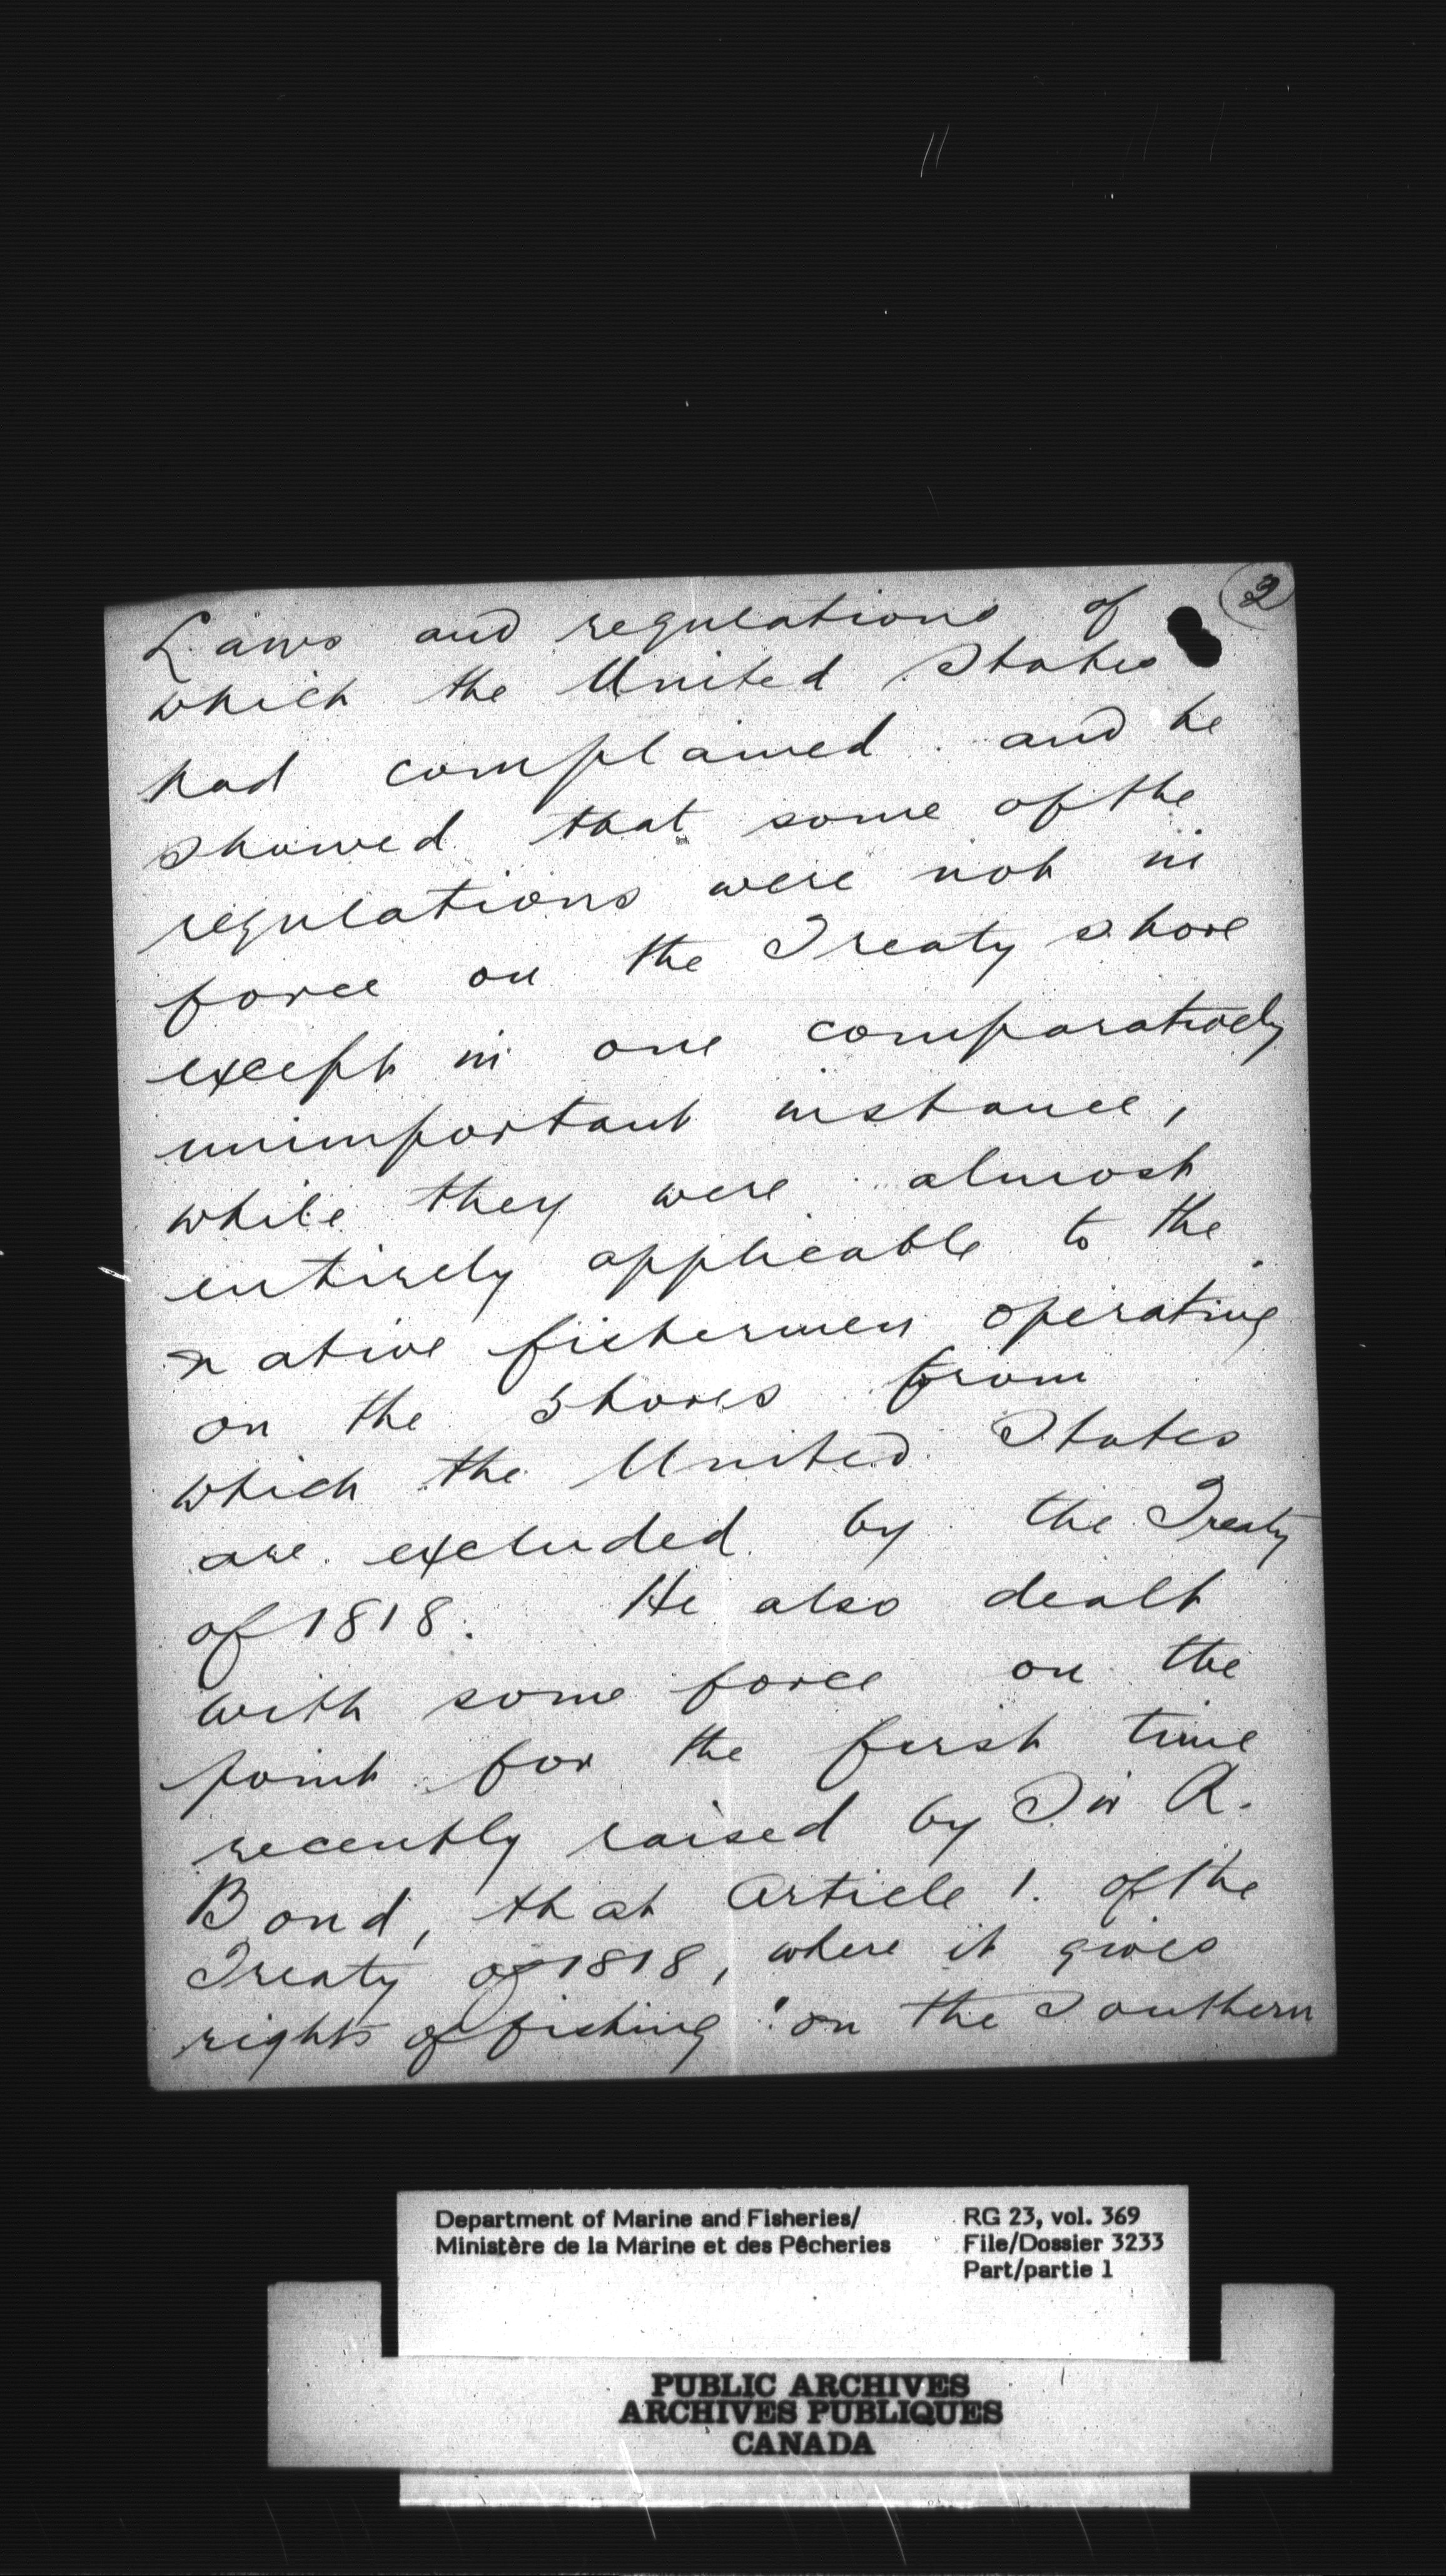 2
Laws and regulations of
which the United States
had complained and he
showed that some of the
regulations were not in
force on the Treaty shore
except in one comparatively
unimportant instance,
while they were almost
entirely applicable to the
native fishermen operating
on the shores from
which the United States
are excluded by the Treaty
of 1818. He also dealt
with some force on the
point for the first time
recently raised by Sir R.
Bond, that Article 1. of the
Treaty of 1818, where it gives
rights of fishing "on the Southern
Department of Marine and Fisheries/
Ministère de la Marine et des Pêcheries
RG 23, vol. 369
File/Dossier 3233
Part/partie 1
PUBLIC ARCHIVES
ARCHIVES PUBLIQUES
CANADA